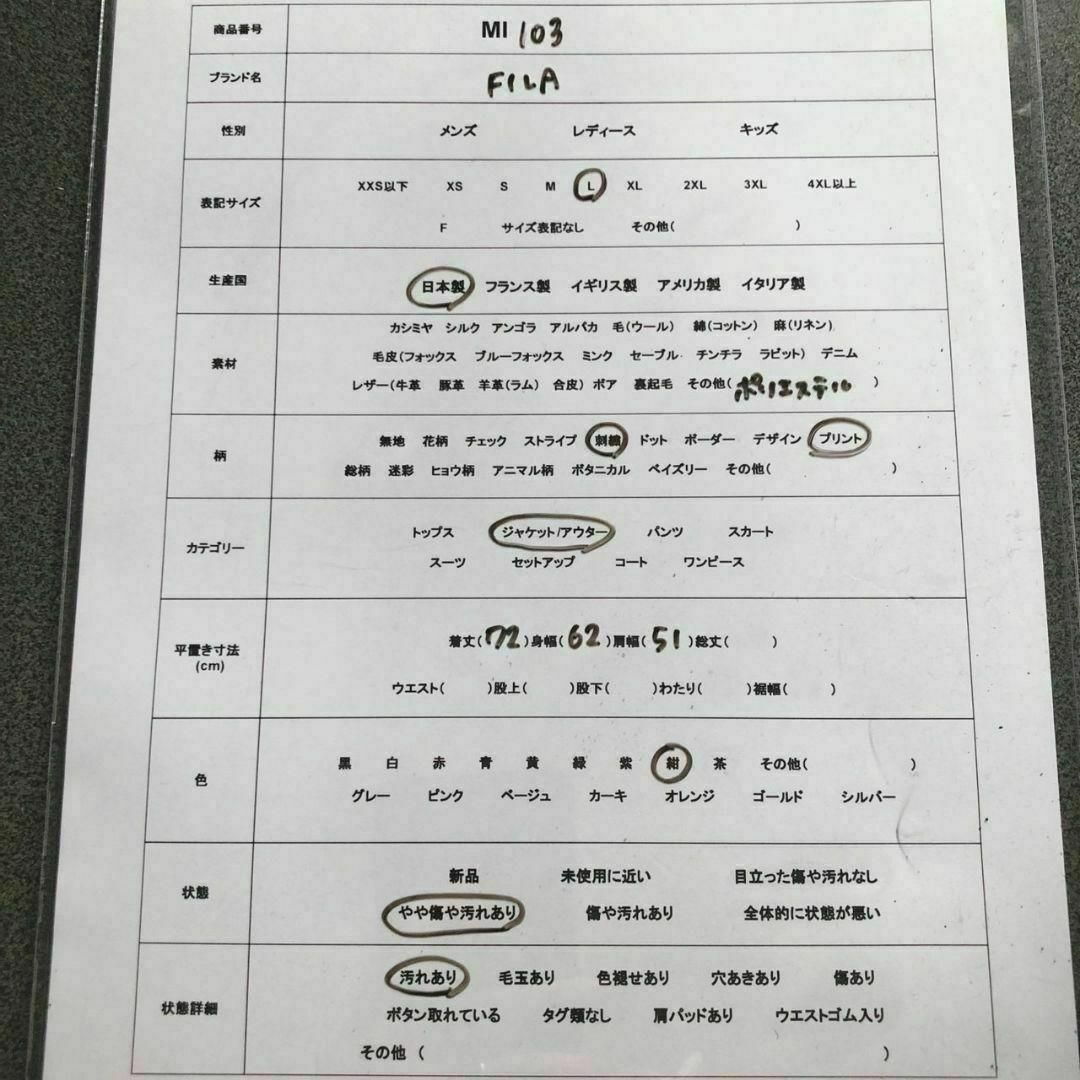 商品番号 MI 103
ブランド名 FILA
性別 メンズ レディース キッズ
表記サイズ XXS以下 XS S M L XL 2XL 3XL 4XL以上
F サイズ表記なし その他( )
生産国 日本製 フランス製 イギリス製 アメリカ製 イタリア製
カシミヤ シルク アンゴラ アルパカ 毛(ウール) 綿(コットン) 麻(リネン)
素材 毛皮(フォックス ブルーフォックス ミンク セーブル チンチラ ラビット) デニム
レザー(牛革 豚革 羊革(ラム) 合皮) ボア 裏起毛 その他(ポリエステル )
柄 無地 花柄 チェック ストライプ 刺繍 ドット ボーダー デザイン プリント
総柄 迷彩 ヒョウ柄 アニマル柄 ボタニカル ペイズリー その他( )
カテゴリー トップス ジャケット/アウター パンツ スカート
スーツ セットアップ コート ワンピース
平置き寸法 着丈(72)身幅(62)肩幅(51)総丈( )
(cm) ウエスト( )股上( )股下( )わたり( )裾幅( )
色 黒 白 赤 青 黄 緑 紫 紺 茶 その他( )
グレー ピンク ベージュ カーキ オレンジ ゴールド シルバー
状態 新品 未使用に近い 目立った傷や汚れなし
やや傷や汚れあり 傷や汚れあり 全体的に状態が悪い
状態詳細 汚れあり 毛玉あり 色褪せあり 穴あきあり 傷あり
ボタン取れている タグ類なし 肩パッドあり ウエストゴム入り
その他 ( )